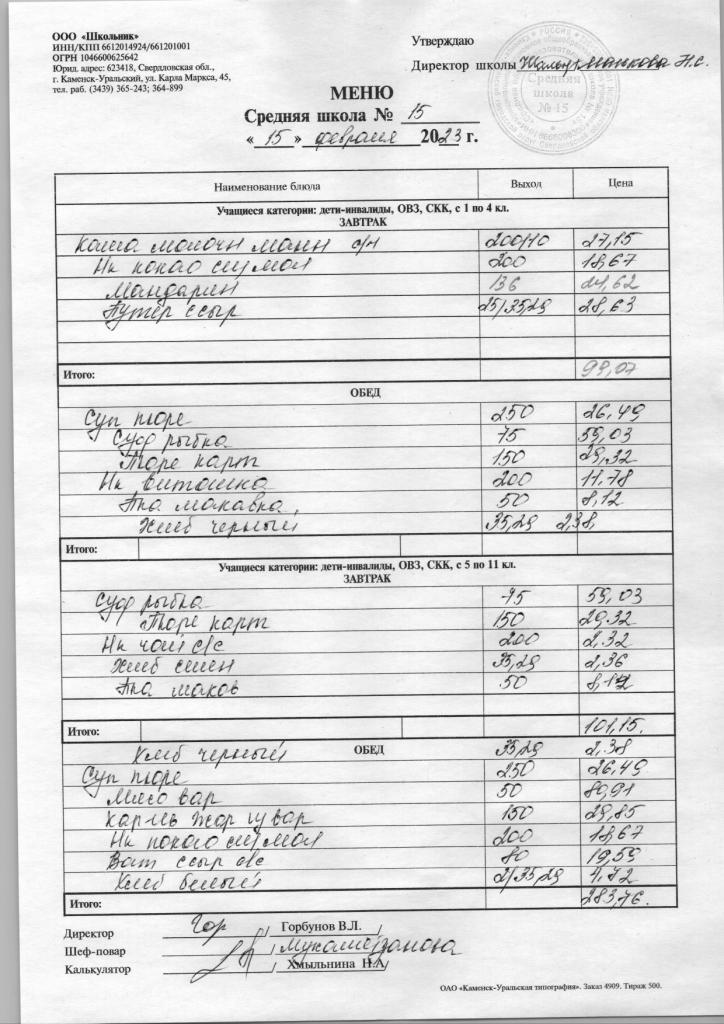 ООО «Школьник»
ИНН/КПП 6612014924/661201001
ОГРН 1046600625642
Юрид. адрес: 623418, Свердловская обл.,
г. Каменск-Уральский, ул. Карла Маркса, 45,
тел. раб. (3439) 365-243; 364-899
Утверждаю
Директор школы Н.С.
РОССИЯ
Средняя
школа
№ 15
МЕНЮ
Средняя школа № 15
« 15 » февраля 2023 г.
Наименование блюда Выход Цена
Учащиеся категории: дети-инвалиды, ОВЗ, СКК, с 1 по 4 кл.
ЗАВТРАК
Каша молочн манн с/м 200/10 27,15
Нк какао сгу мол 200 18,67
Мандарин 136 24,62
Бутер ссыр 25/35,29 28,63
Итого: 99,07
ОБЕД
Суп пюре 250 26,49
Суф рыбка 75 59,03
Пюре карт 150 29,32
Нк витошка 200 11.78
Пка маковка 50 8,12
Хлеб черный 35,29 2,38
Итого:
Учащиеся категории: дети-инвалиды, ОВЗ, СКК, с 5 по 11 кл.
ЗАВТРАК
Суф рыбка 75 59,03
Пюре карт 150 29.32
Нк чай с/с 200 2,32
Хлеб 35,29 2,36
Пка маков 50 8,12
Итого: 101,15.
Хлеб черный ОБЕД 35,29 2,38
Суп пюре 250 26,49
Мясо вар 50 80,91
150 29,85
Нк какао сгу мол 200 18,67
Бат ссыр с/с 80 19,59
Хлеб белый 4,72
Итого: 283,76.
Директор / Горбунов В.Л. /
Шеф-повар /
Калькулятор / Хмыльнина Н.А/
ОАО «Каменск-Уральская типография». Заказ 4909. Тираж 500.